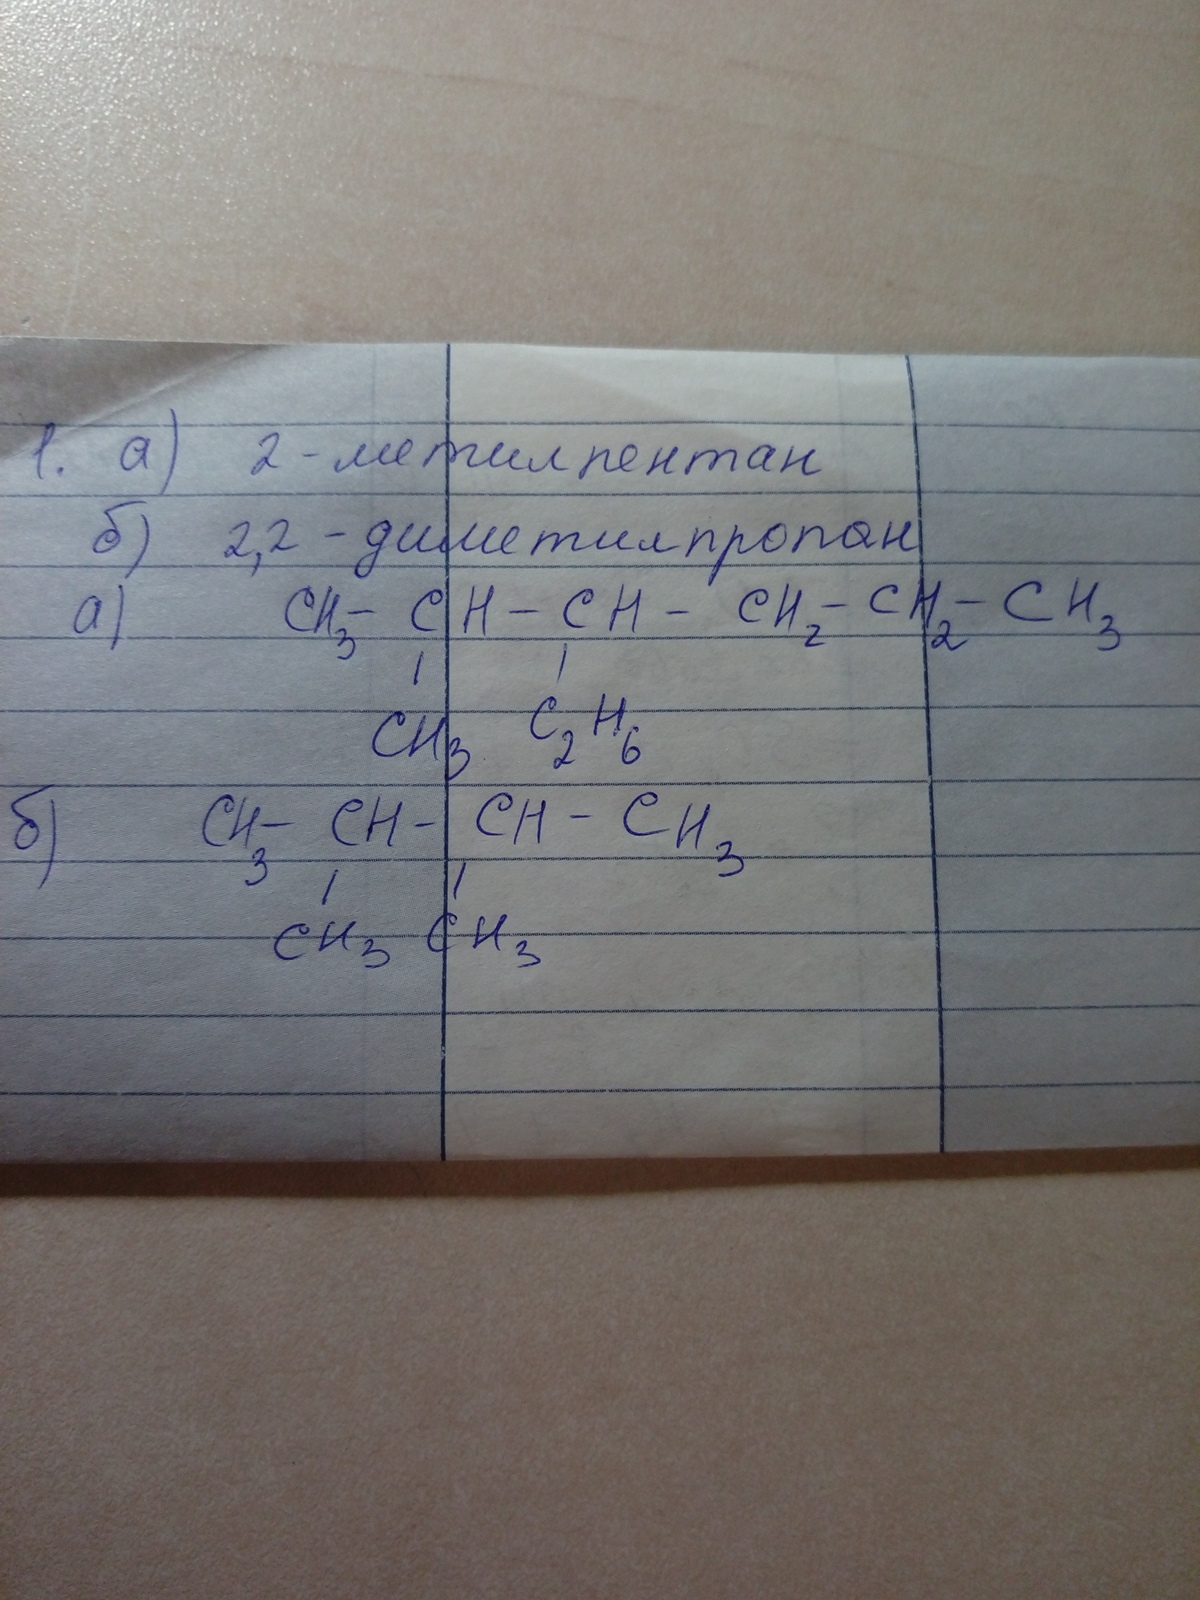 1. а) 2-метилпентан
б) 2,2-диметилпропан
а) CH₃- CH - CH - CH₂ - CH₂ - CH₃
| |
CH₃ C₂H₆
б) CH₃- CH - CH - CH₃
| |
CH₃ CH₃